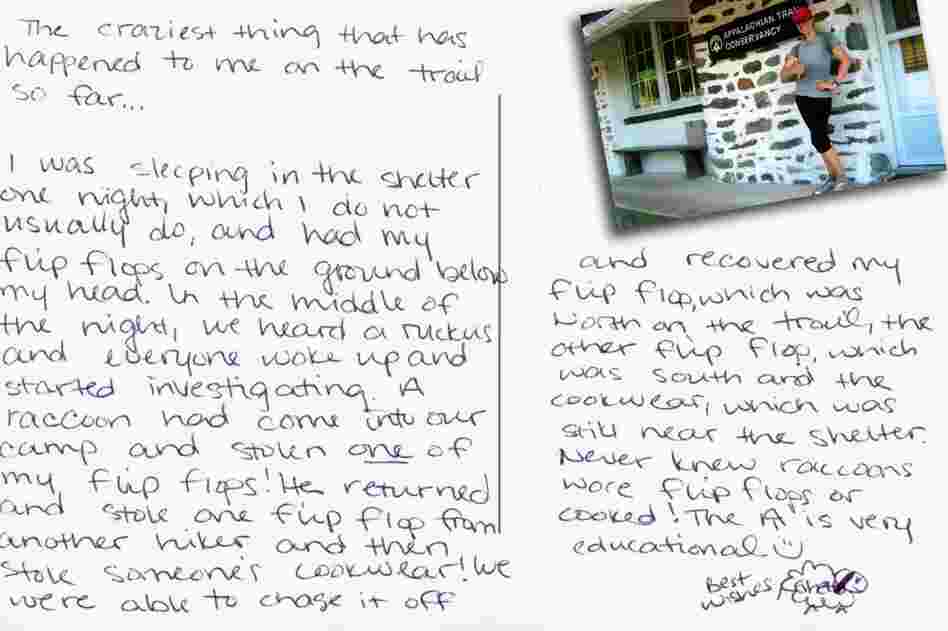 The craziest thing that has
happened to me on the trail
so far...
I was sleeping in the shelter
one night, which I do not
usually do, and had my
flip flops on the ground below
my head. In the middle of
the night, we heard a ruckus
and everyone woke up and
started investigating. A
raccoon had come into our
camp and stolen one of
my flip flops! He returned
and stole one flip flop from
another hiker and then
stole someone's cookwear! We
were able to chase it off
APPALACHIAN TRAIL
CONSERVANCY
and recovered my
flip flop, which was
North on the trail, the
other flip flop, which
was south and the
cookwear, which was
still near the shelter.
Never knew raccoons
wore flip flops or
cooked! The AT is very
educational
Best
Wishes